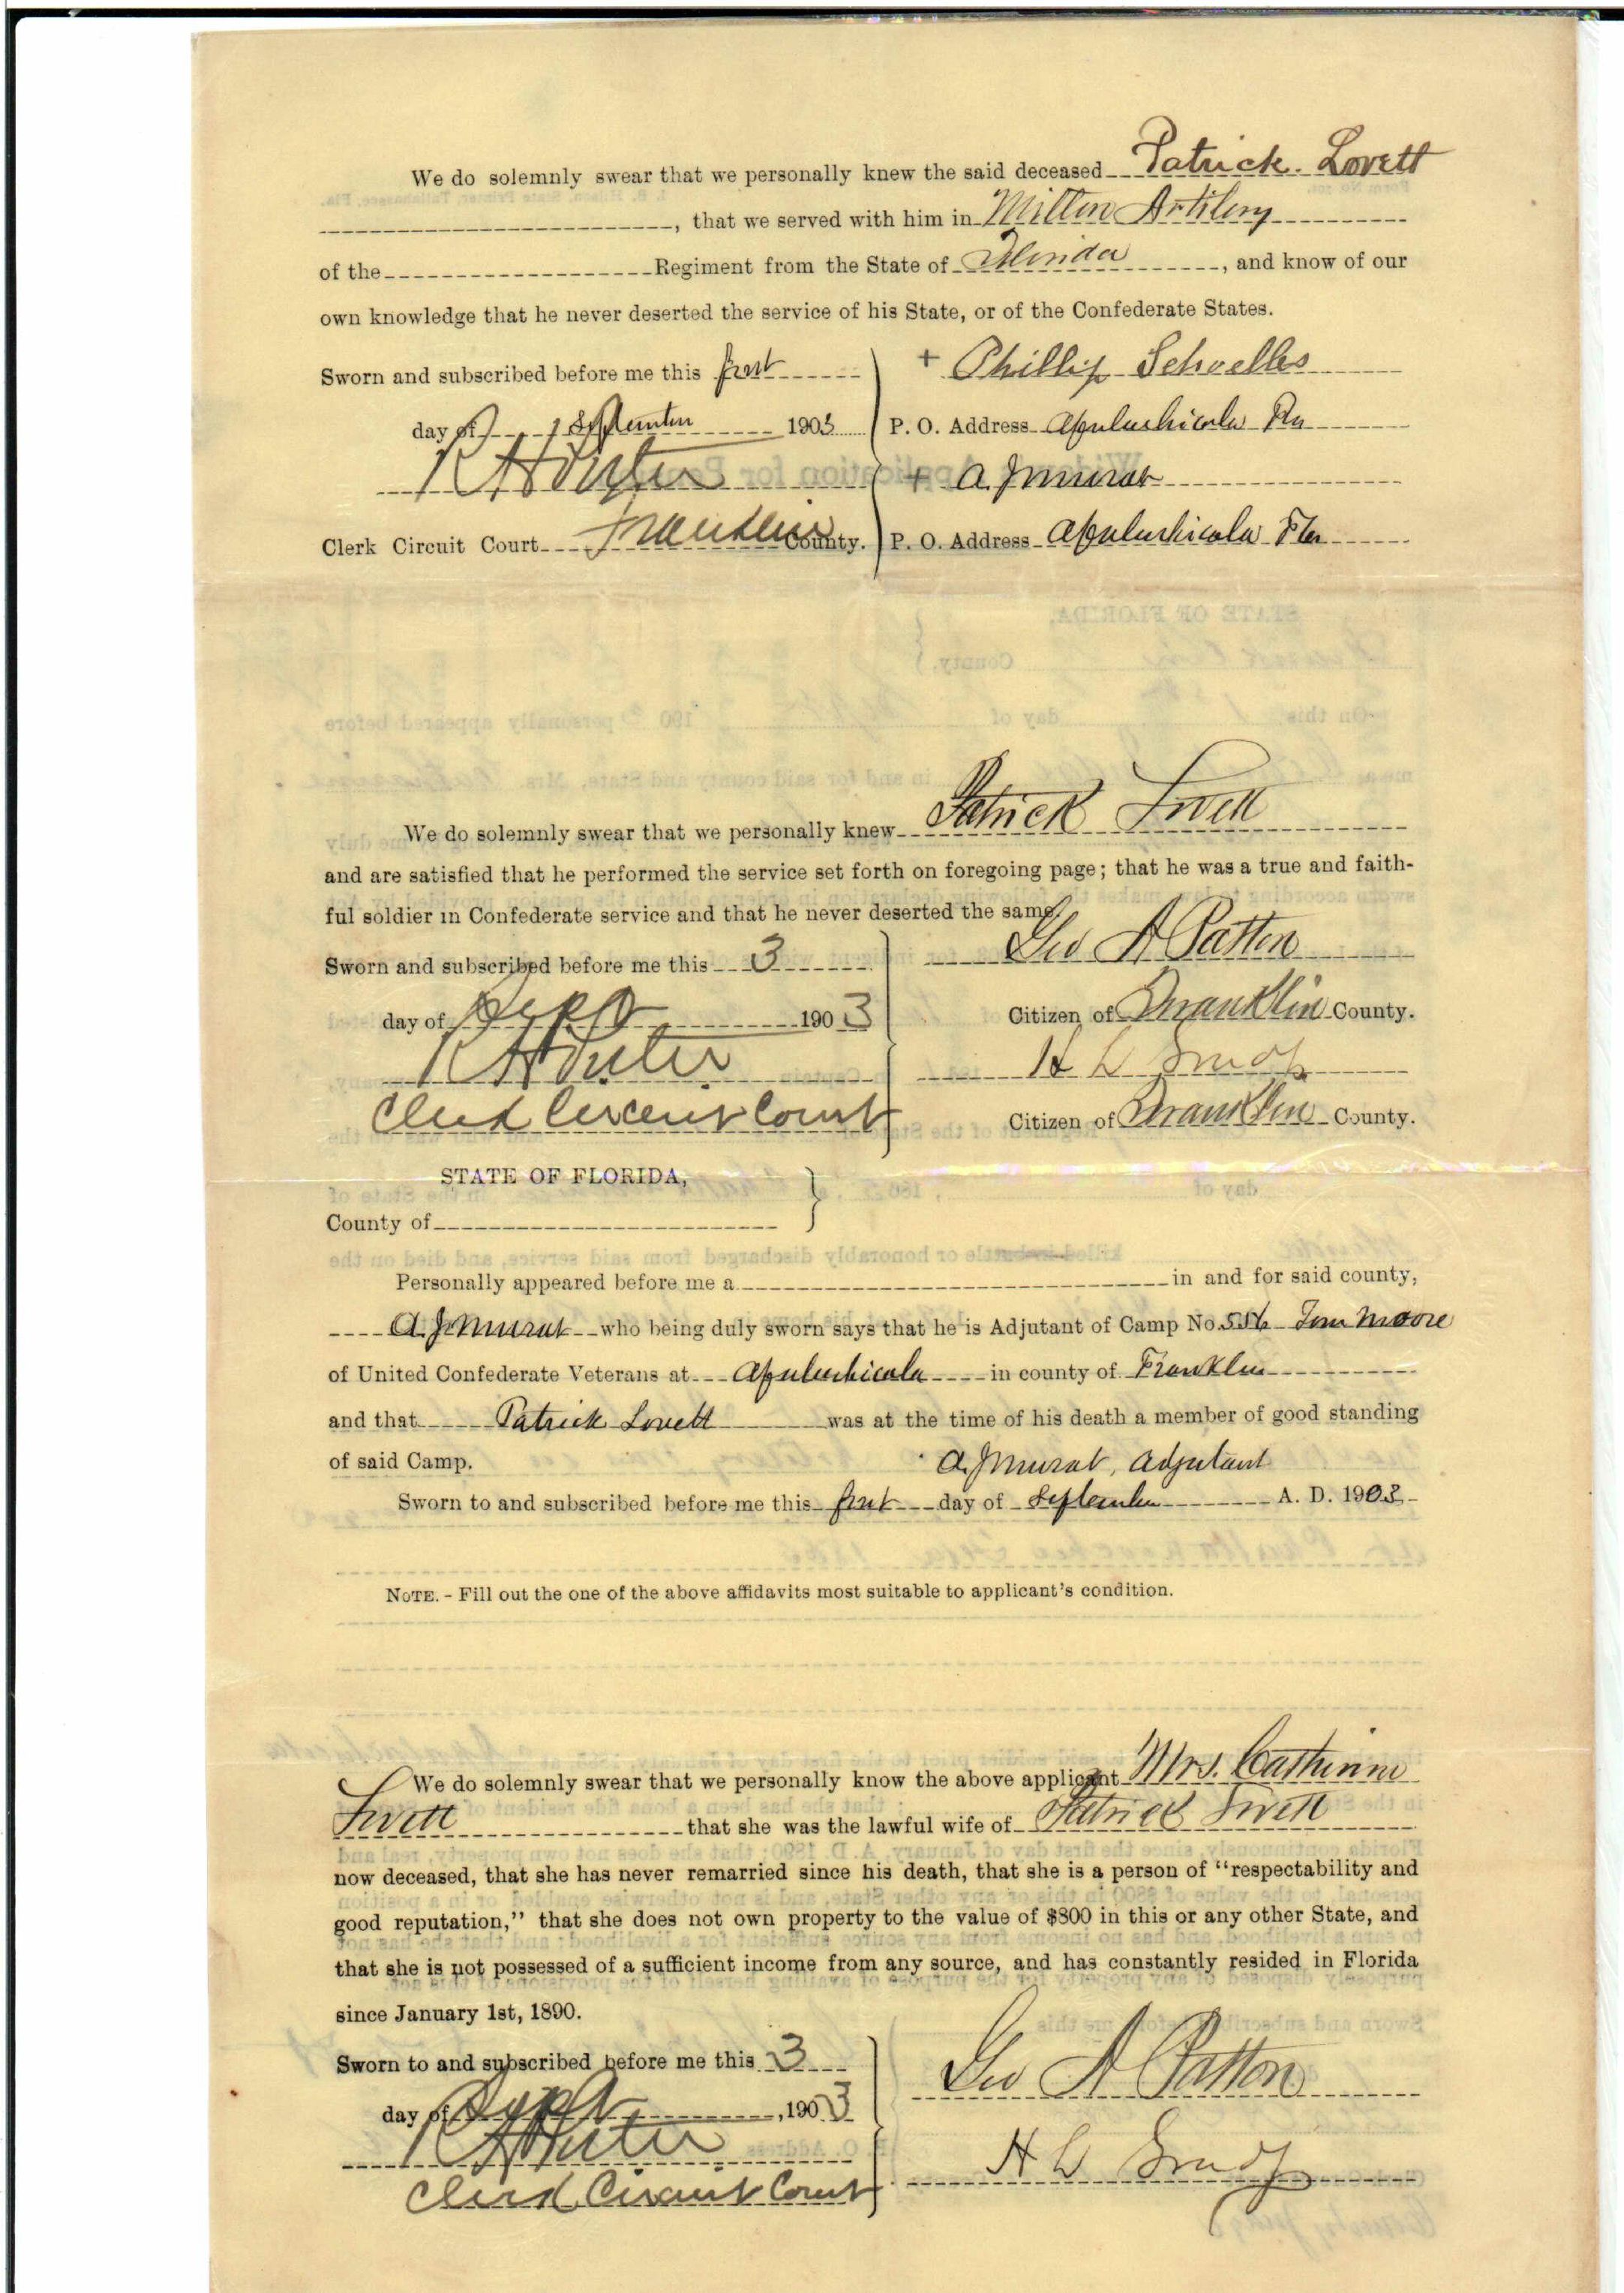 We do solemnly swear that we personally knew the said deceased Patrick Lovett
, that we served with him in Milton Artilery
of the Regiment from the State of Florida, and know of our
own knowledge that he never deserted the service of his State, or of the Confederate States.
Sworn and subscribed before me this first
day of September 1903
R H Porter
Clerk Circuit Court Franklin County.
+ Phillip Schoelles
P. O. Address Apalachicola Fla
+ A. J Murat
P. O. Address Apalachicola Fla
We do solemnly swear that we personally knew Patrick Lovett
and are satisfied that he performed the service set forth on foregoing page; that he was a true and faith-
ful soldier in Confederate service and that he never deserted the same.
Sworn and subscribed before me this 3
day of Sept 1903
R H Porter
Clerk Circuit Court
Geo A Patton
Citizen of Franklin County.
H L Grady
Citizen of Franklin County.
STATE OF FLORIDA,
County of
Personally appeared before me a in and for said county,
A. J Murat who being duly sworn says that he is Adjutant of Camp No. 556 Tom Moore
of United Confederate Veterans at Apalachicola in county of Franklin
and that Patrick Lovett was at the time of his death a member of good standing
of said Camp. A. J Murat, Adjutant
Sworn to and subscribed before me this first day of September A. D. 1903
NOTE. - Fill out the one of the above affidavits most suitable to applicant's condition.
We do solemnly swear that we personally know the above applicant Mrs. Catherine
Lovett that she was the lawful wife of Patrick Lovett
now deceased, that she has never remarried since his death, that she is a person of "respectability and
good reputation," that she does not own property to the value of $800 in this or any other State, and
that she is not possessed of a sufficient income from any source, and has constantly resided in Florida
since January 1st, 1890.
Sworn to and subscribed before me this 3
day of Sept, 1903
R H Porter
Clerk Circuit Court
Geo A Patton
H L Grady